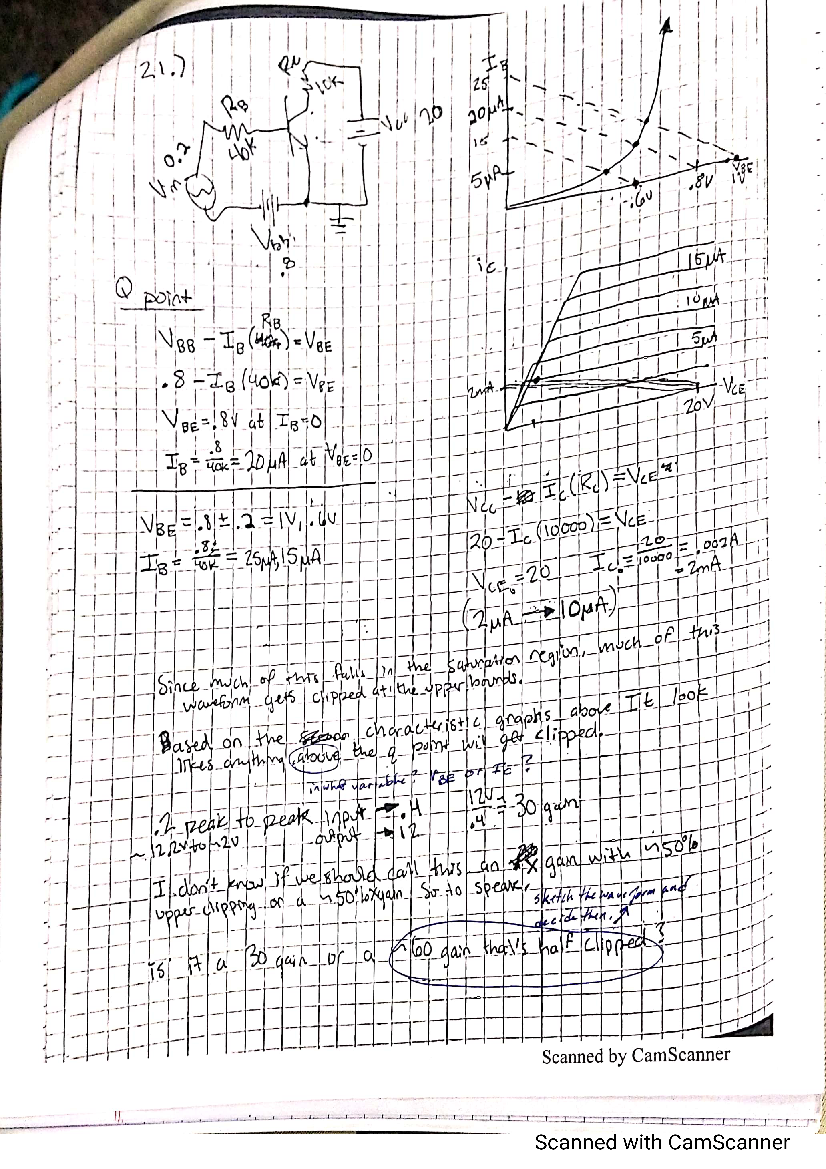 21.7
RB
40K
10K
Vcc 20
0.2
Vin
Vbb
.8
IB
25
20μA
15
5μA
.6V
.8V
1V
VBE
ic
15μA
10μA
5μA
2mA
20V
VCE
Q point
RB
VBB - IB (40k) = VBE
.8 - IB (40k) = VBE
VBE = .8V at IB = 0
IB = .8/40k = 20μA at VBE = 0
VBE = .8 ± .2 = 1V, .6V
IB = .8±/40k = 25μA, 15μA
Vcc - Ic (Rc) = VCE
20 - Ic (10000) = VCE
VCE₀ = 20 Ic₀ = 20/10000 = .002A
= 2mA
(2μA → 10μA)
Since much of this falls in the saturation region, much of this
waveform gets clipped at the upper bounds.
Based on the characteristic graphs above It look
likes anything above the q point will get clipped.
in what variable? VBE or IC?
.2 peak to peak input → .4 12V/.4 = 30 gain
~ 12.2V to ~2V output → 12
I don't know if we should call this an X gain with ~50%
upper clipping or a ~50% Xgain. So to speak.
sketch the waveform and
decide then.
is it a 30 gain or a ~60 gain that's half clipped?
Scanned by CamScanner
Scanned with CamScanner